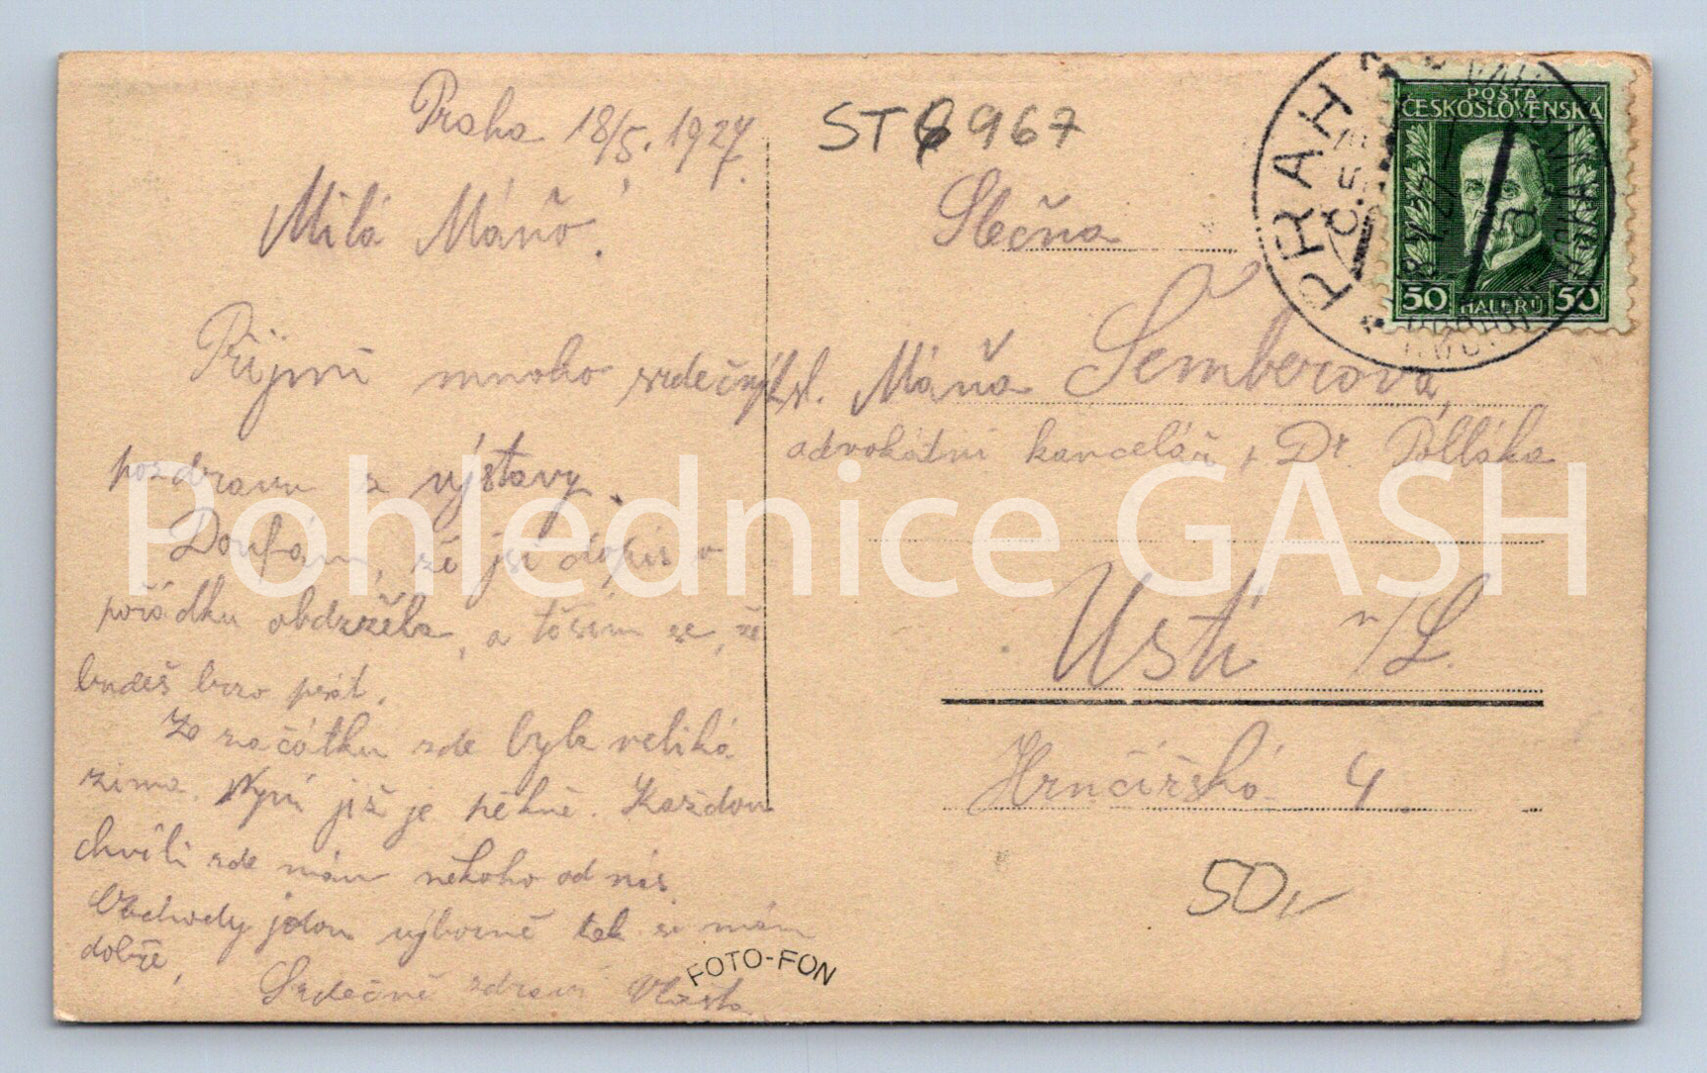 Praha 18/5. 1927.
Milá Máňo!
Přijmi mnoho srdečných
pozdravů z výstavy.
Doufám, že jsi dopis v
pořádku obdržela, a těším se, že
budeš brzo psát.
Ze začátku zde byla veliká
zima. Nyní již je pěkně. Každou
chvíli zde mám někoho od nás.
Obchody jdou výborně tak se mám
dobře,
Srdečně zdraví Vlasta
FOTO-FON
ST 8967
Slečna
sl. Máňa Šemberová,
advokátní kancelář, Dr. Polláka
Ustí n/L.
Hrnčířská 4.
50,-
POSTA
ČESKOSLOVENSKÁ
50 HALÉŘŮ 50
PRAHA
Pohlednice GASH